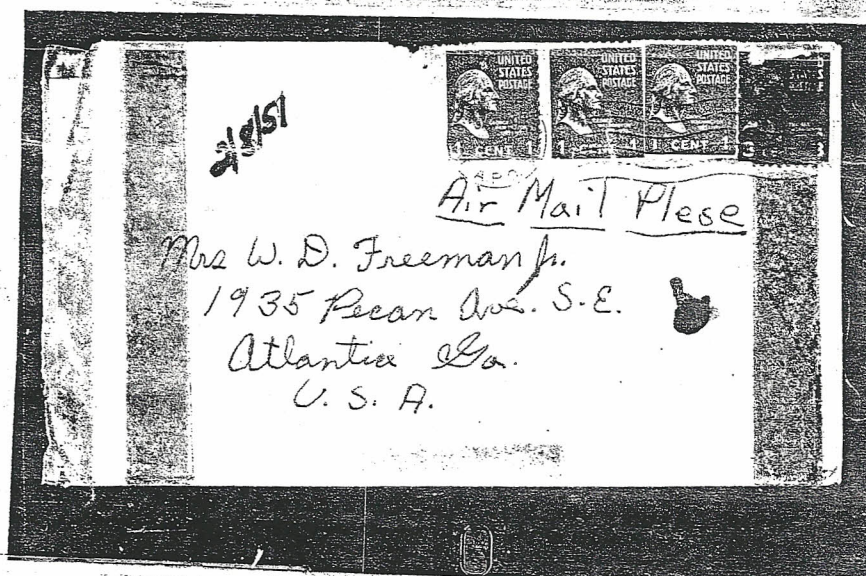 UNITED STATES POSTAGE
1 CENT 1
UNITED STATES POSTAGE
1 CENT 1
UNITED STATES POSTAGE
1 CENT 1
3 3
2/8/51
Air Mail Plese
Mrs W. D. Freeman Jr.
1935 Pecan Ave. S.E.
Atlanta Ga.
U. S. A.